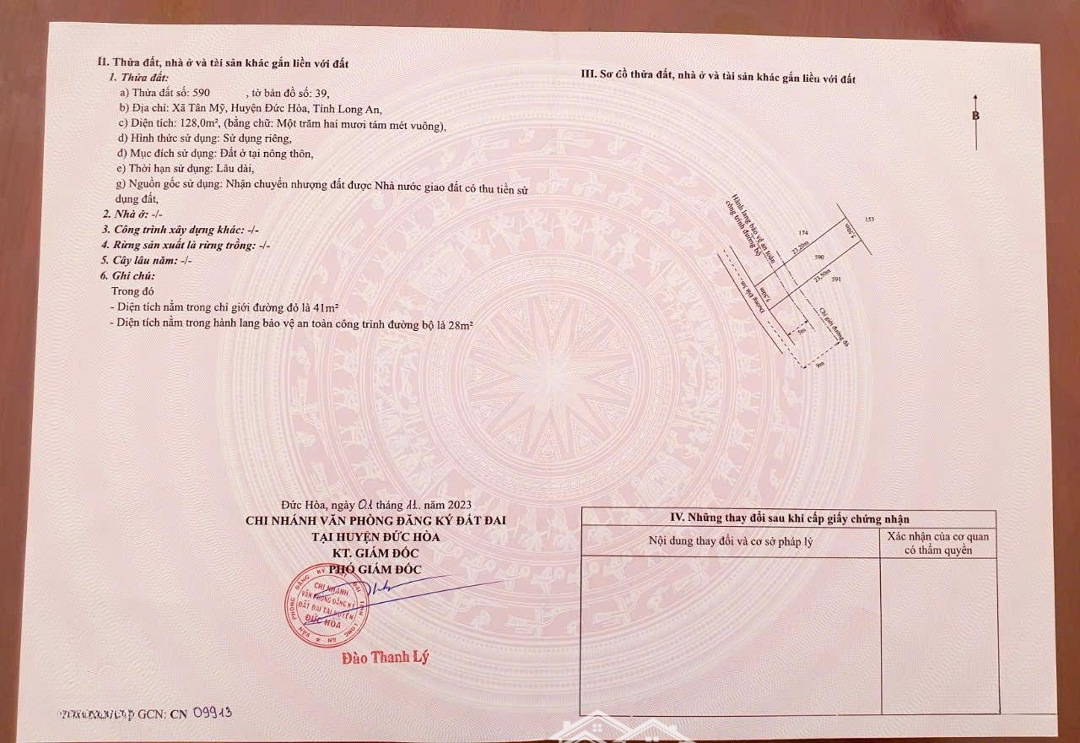 II. Thửa đất, nhà ở và tài sản khác gắn liền với đất
1. Thửa đất:
a) Thửa đất số: 590 , tờ bản đồ số: 39,
b) Địa chỉ: Xã Tân Mỹ, Huyện Đức Hòa, Tỉnh Long An,
c) Diện tích: 128,0m², (bằng chữ: Một trăm hai mươi tám mét vuông),
d) Hình thức sử dụng: Sử dụng riêng,
đ) Mục đích sử dụng: Đất ở tại nông thôn,
e) Thời hạn sử dụng: Lâu dài,
g) Nguồn gốc sử dụng: Nhận chuyển nhượng đất được Nhà nước giao đất có thu tiền sử
dụng đất,
2. Nhà ở: -/-
3. Công trình xây dựng khác: -/-
4. Rừng sản xuất là rừng trồng: -/-
5. Cây lâu năm: -/-
6. Ghi chú:
Trong đó
- Diện tích nằm trong chỉ giới đường đỏ là 41m²
- Diện tích nằm trong hành lang bảo vệ an toàn công trình đường bộ là 28m²
Đức Hòa, ngày 01 tháng 11. năm 2023
CHI NHÁNH VĂN PHÒNG ĐĂNG KÝ ĐẤT ĐAI
TẠI HUYỆN ĐỨC HÒA
KT. GIÁM ĐỐC
PHÓ GIÁM ĐỐC
CHI NHÁNH
VĂN PHÒNG ĐĂNG KÝ
ĐẤT ĐAI TẠI HUYỆN
ĐỨC HÒA
Đào Thanh Lý
GCN: CN 09913
III. Sơ đồ thửa đất, nhà ở và tài sản khác gắn liền với đất
B
Hành lang bảo vệ an toàn
công trình đường bộ
174
23,20m
153
5,50m
590
23,50m
591
5,50m
Chỉ giới đường đỏ
9m
IV. Những thay đổi sau khi cấp giấy chứng nhận
Nội dung thay đổi và cơ sở pháp lý
Xác nhận của cơ quan
có thẩm quyền